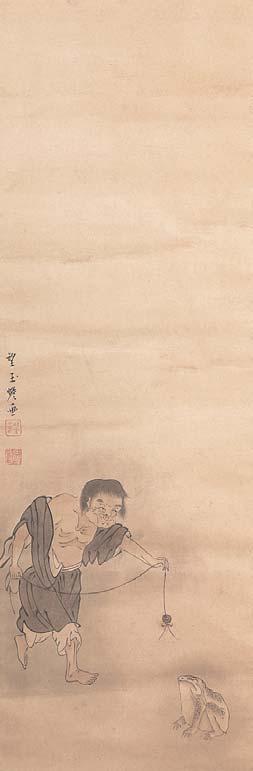 望玉蟾画